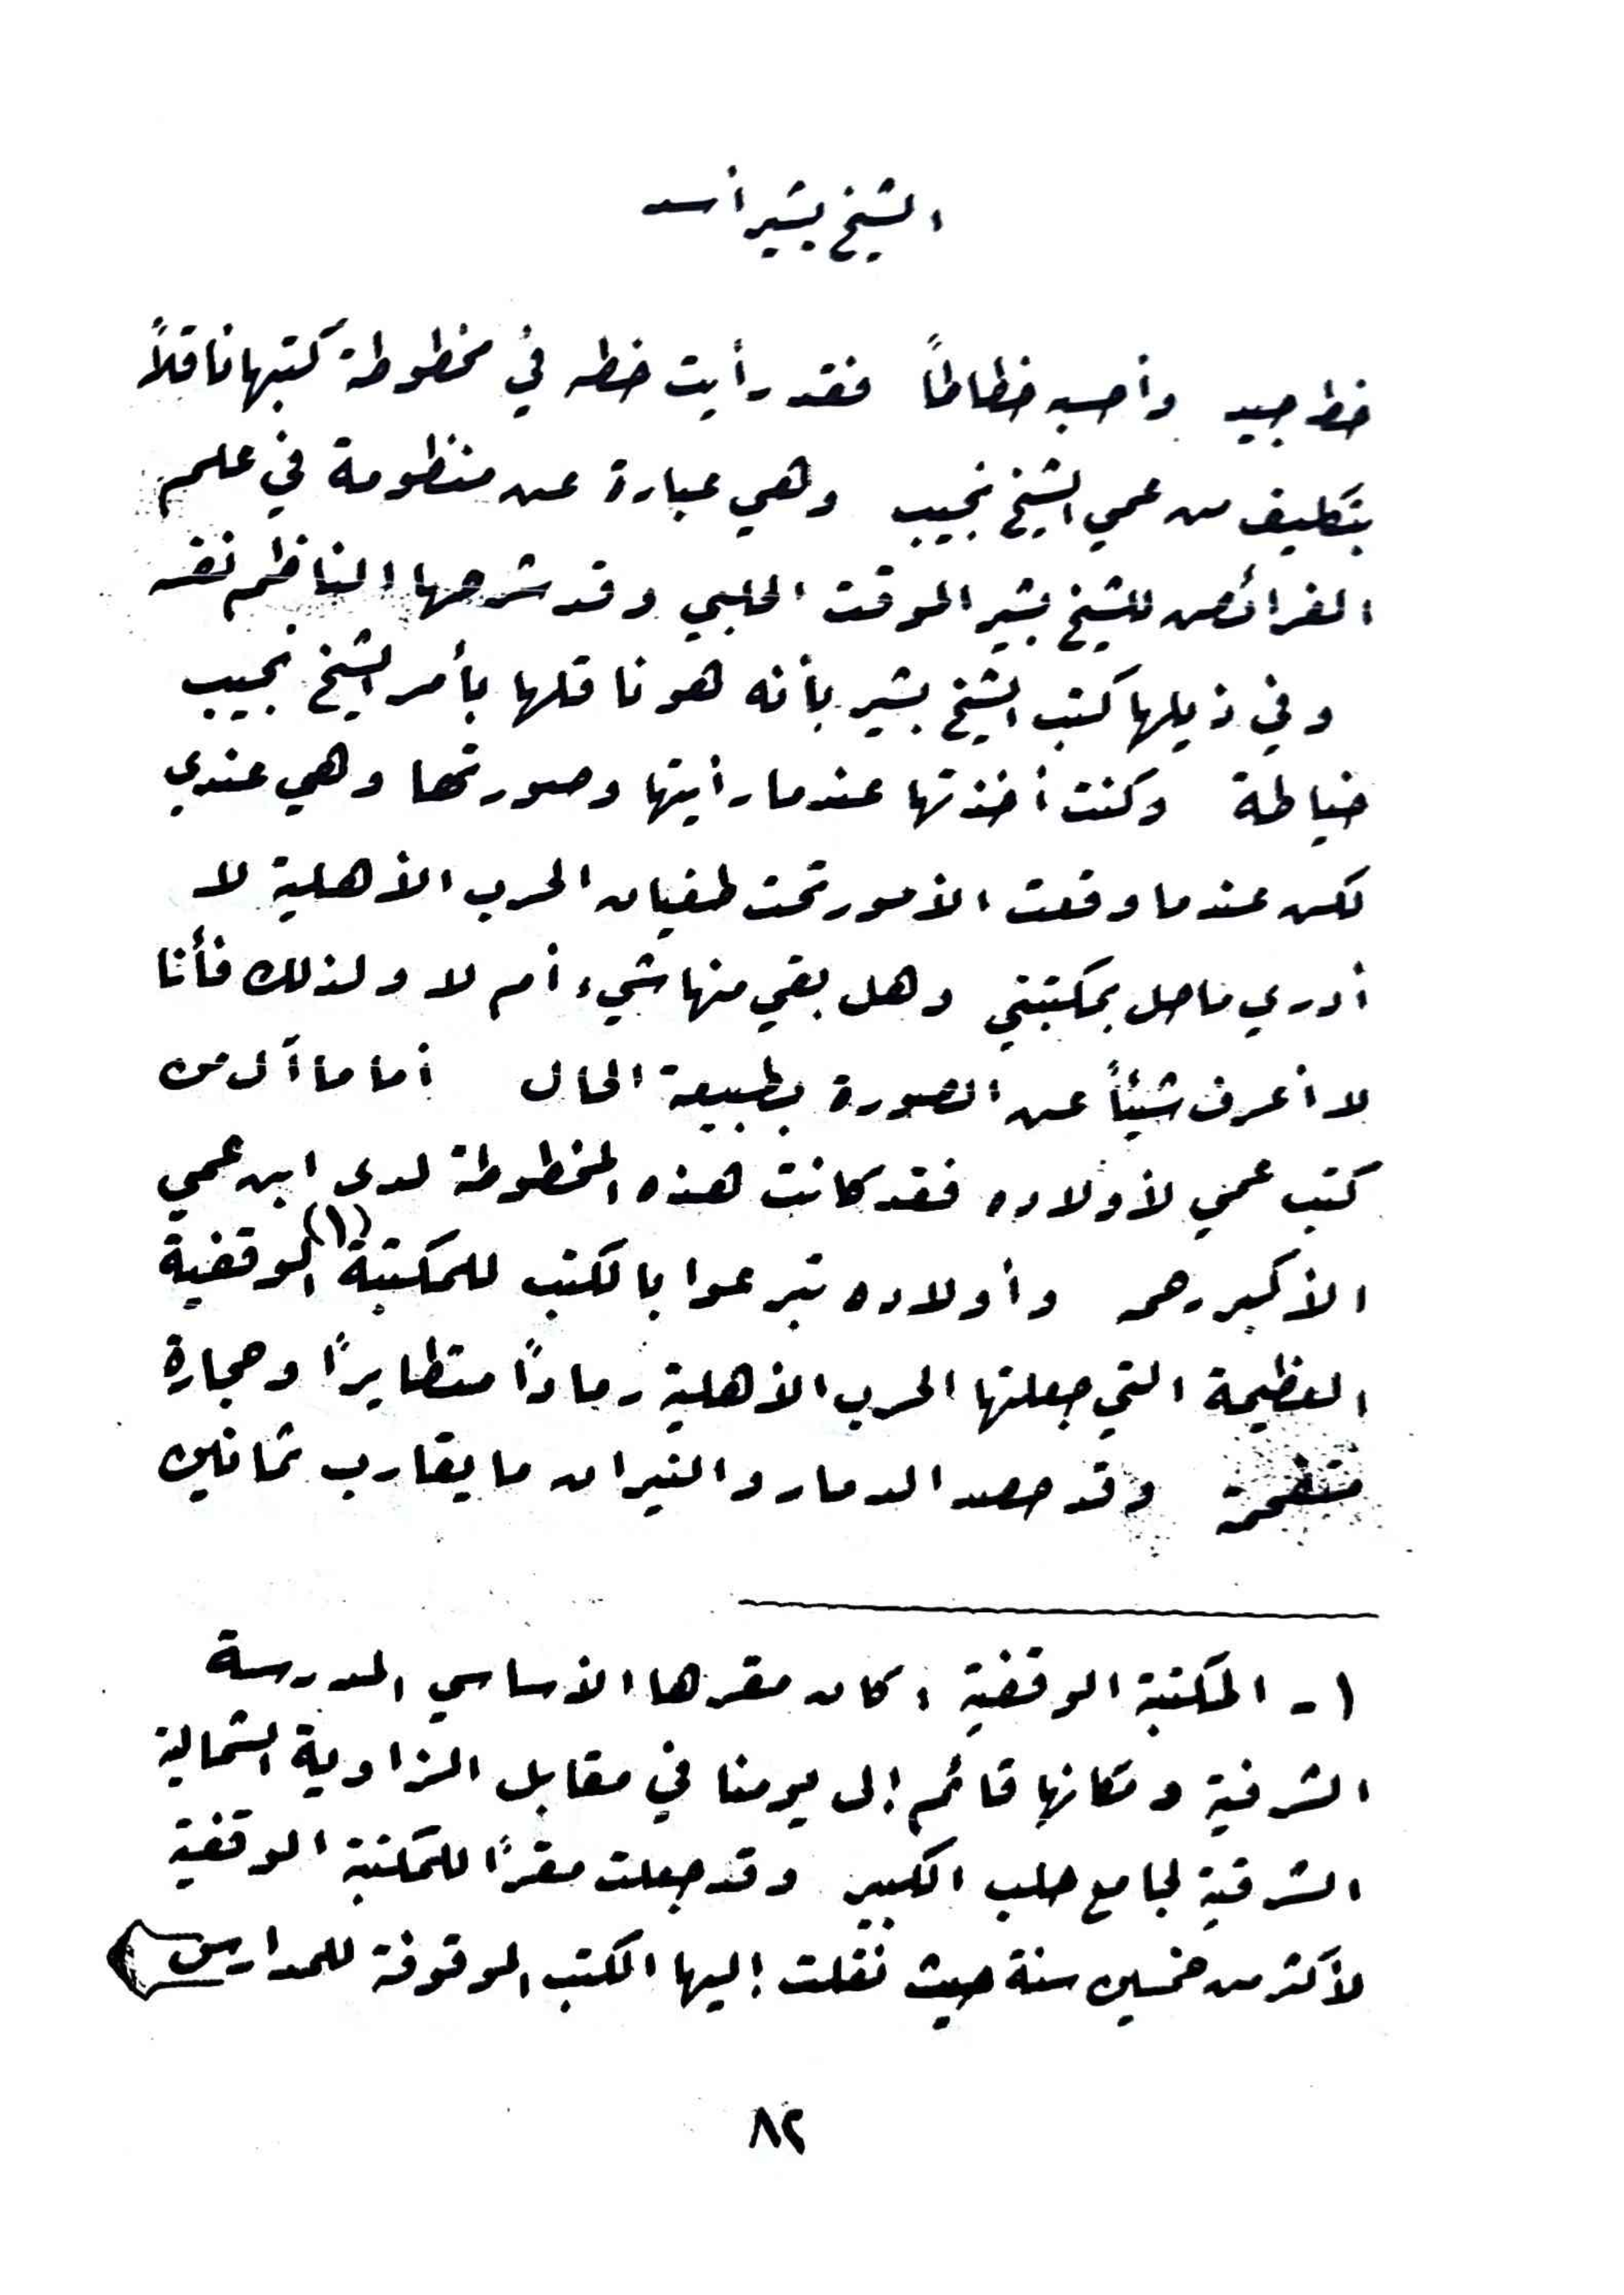 الشيخ بشير أسد
خط جيد وأحسبه خطاطاً فقد رأيت خطه في مخطوطة كتبها ناقلاً
بتكليف من عمي الشيخ نجيب وهي عبارة عن منظومة في علم
الفرائض للشيخ بشير الموقت الحلبي وقد شرحها الناظم نفسه
وفي ذيلها كتب الشيخ بشير بأنه هو ناقلها بأمر الشيخ نجيب
خياطة وكنت أخذتها عندما رأيتها وصورتها وهي عندي
لكن عندما وقعت الأمور تحت طغيان الحرب الأهلية لا
أدري ما حل بمكتبتي وهل بقي منها شيء أم لا ولذلك فأنا
لا أعرف شيئاً عن الصورة بطبيعة الحال أما ما آل من
كتب عمي لأولاده فقد كانت هذه المخطوطة لدى ابن عمي
الأكبر رحمه وأولاده تبرعوا بالكتب للمكتبة (١) الوقفية
العظيمة التي جعلتها الحرب الأهلية رماداً متطايراً وحجارة
متفحمة وقد حصد الدمار والنيران ما يقارب ثمانين
١ - المكتبة الوقفية : كان مقرها الأساسي المدرسة
الشرفية ومكانها قائم إلى يومنا في مقابل الزاوية الشمالية
الشرقية لجامع حلب الكبير وقد جعلت مقراً للمكتبة الوقفية
لأكثر من خمسين سنة حيث نقلت إليها الكتب الموقوفة للمدارس
٨٢